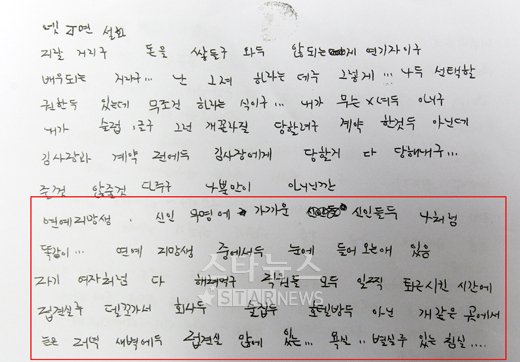 지랄 거지구 돈을 쌓들구 와두 않되는게 연기자이구
배우되는 거지구... 난 그래 하라는 데루 그렇게... 나두 선택할
권한두 있는데 무조건 하라는 식이구... 내가 무는 X녀두 아니구
내가 술접 구 그런 개꼬라질 당할려구 계약 한것두 아닌데
김사장과 계약 전에두 김사장에게 당할거 다 당해내구...
줄것 않줄것 다주구 나뿐만이 아니닌깐
연예지망생. 신인 무명에 가까운 신인들두 나처럼
똑같이... 연예 지망생 중에서두 눈에 들어오는애 있음
자기 여자처럼 다 해먹구 직원들 모두 일찍 퇴근시킨 시간에
접견실루 델꼬가서 회사두 술집두 호텔방두 아닌 개같은 곳에서
저녁 새벽에두 접견실 앞에 있는... 욕실.. 별실루 있는 침실....
스타뉴스
STARNEWS